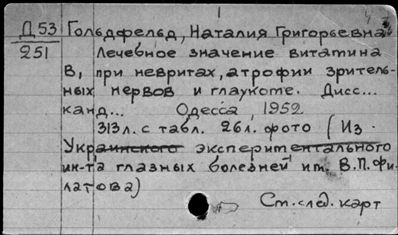 Д 53 Гольдфельд, Наталия Григорьевна
251 Лечебное значение витамина
В, при невритах, атрофии зритель-
ных нервов и глаукоме. Дисс...
канд... Одесса, 1952
313л. с табл. 26л. фото (Из
Украинского экспериментального
ин-та глазных болезней им. В.П. Фи-
латова)
См. след. карт